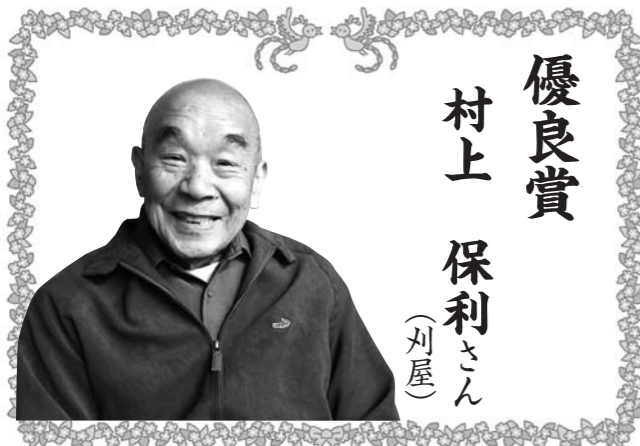 優良賞
村上　保利さん
（刈屋）